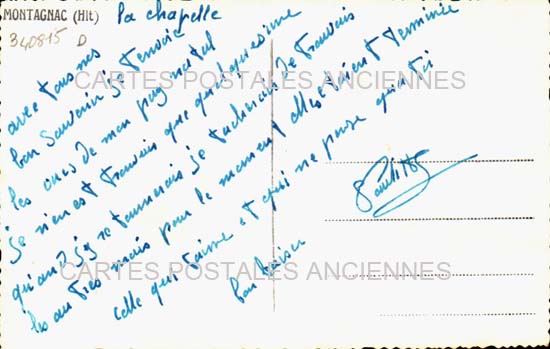 MONTAGNAC (Hlt)
la chapelle
340815 D
avec tous mes
bon souvenir je t'envoie
les oues de mon pay natal
je n'en est trouvais que quelques une
quand j'y retournerais je tacherais de trouvais
les autres mais pour le moment elles étaient terminée
celle qui t'aime et qui ne pense qu'a toi
bon baiser
CARTES POSTALES ANCIENNES
CARTES POSTALES ANCIENNES